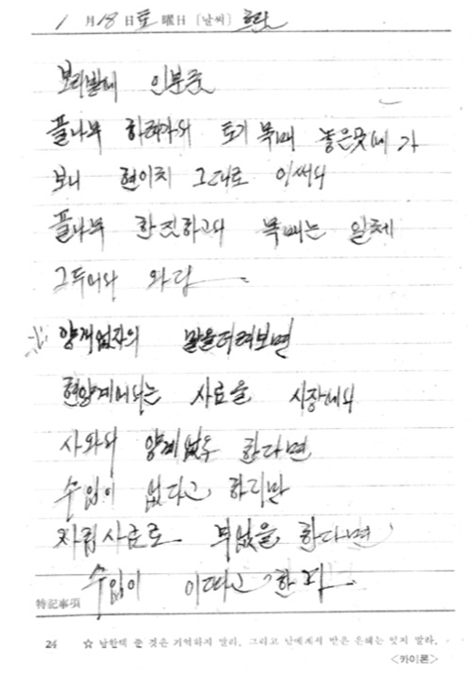 1 月 18 日 土 曜日 〔날씨〕 흐림
보리밭에 인분 줌
플나무 하려가와 토기 목매 놓은곳에 가
보니 현이치 그대로 이써와
플나무 한짓하고와 목매는 일체
그두어와 와답
양게업자의 말을더러보면
현양게에와는 사료을 시장에와
사와와 양게없두 한다면
수입이 없다고 하리만
자립사료로 부없을 한다면
수입이 이따고 한다
特記事項
24 ☆ 남한테 준 것은 기억하지 말라. 그리고 남에게서 받은 은혜는 잊지 말라.
<카이론>